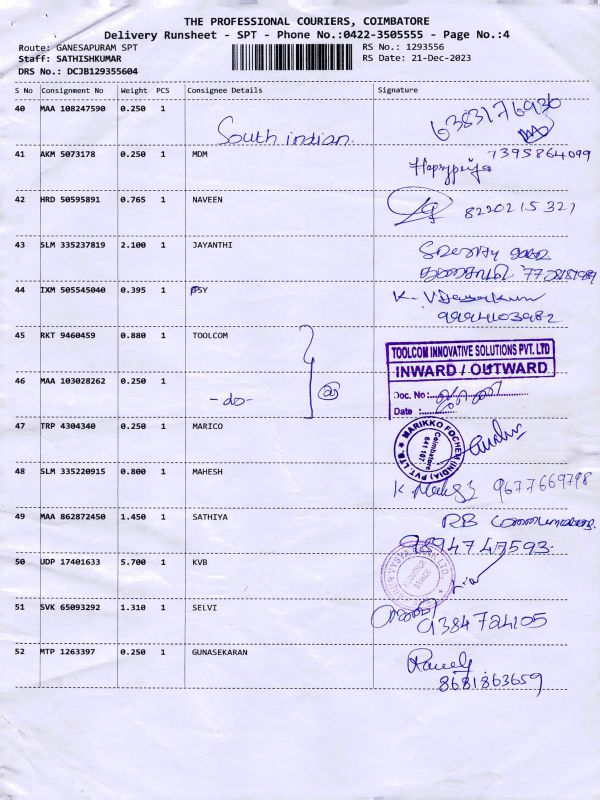 THE PROFESSIONAL COURIERS, COIMBATORE
Delivery Runsheet - SPT - Phone No.:0422-3505555 - Page No.:4
Route: GANESAPURAM SPT
RS No.: 1293556
Staff: SATHISHKUMAR
RS Date: 21-Dec-2023
DRS No.: DCJB129355604
S No Consignment No Weight PCS Consignee Details Signature
40 MAA 108247590 0.250 1
South indian. 6383176936
41 AKM 5073178 0.250 1 MDM 7395864099
42 HRD 50595891 0.765 1 NAVEEN
8220215327
43 SLM 335237819 2.100 1 JAYANTHI
44 IXM 505545040 0.395 1 PSY
9994103982
45 RKT 9460459 0.880 1 TOOLCOM
TOOLCOM INNOVATIVE SOLUTIONS PVT. LTD
INWARD / OUTWARD
46 MAA 103028262 0.250 1
-do- Doc. No:
Date :
47 TRP 4304340 0.250 1 MARICO
MARIKKO FOCHEM (INDIA) PVT. LTD.
Coimbatore
641 107
48 SLM 335220915 0.800 1 MAHESH
9677669798
49 MAA 862872450 1.450 1 SATHIYA
RB Communications
9894747593
50 UDP 17401633 5.700 1 KVB
51 SVK 65093292 1.310 1 SELVI
9384724105
52 MTP 1263397 0.250 1 GUNASEKARAN
8681863659